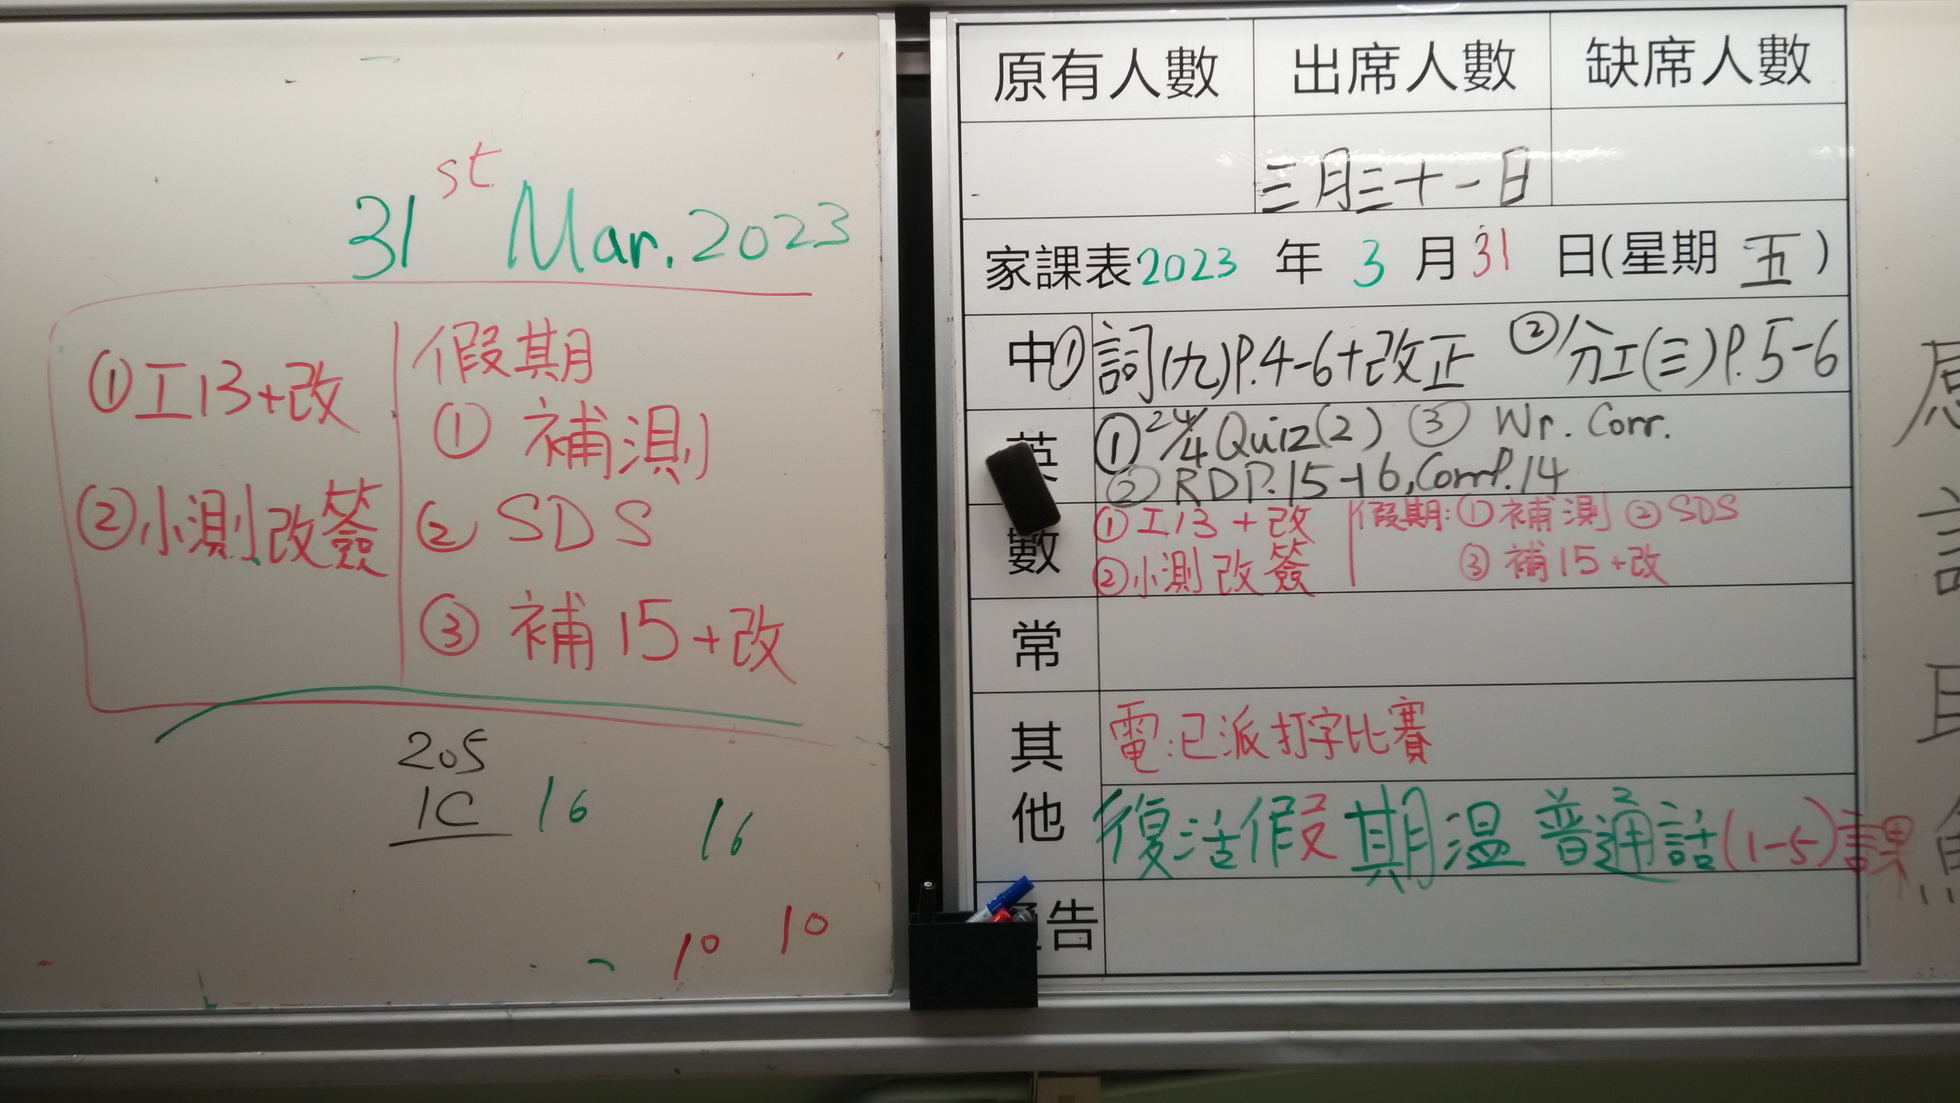 31st Mar. 2023
①工13+改
②小測改簽
假期
① 補測
② SDS
③ 補15+改
205
1C
16
16
10
10
原有人數 出席人數 缺席人數
三月三十一日
家課表2023 年 3 月31 日(星期 五)
中 ①詞(九)P.4-6+改正 ②分工(三)P.5-6
英 ①24/4 Quiz(2) ③ Wr. Corr.
② RDP.15-16, Comp.14
數 ①工13+改 假期:①補測 ②SDS
②小測改簽 ③ 補15+改
常
其他 電:已派打字比賽
復活假期温普通話(1-5)課
告